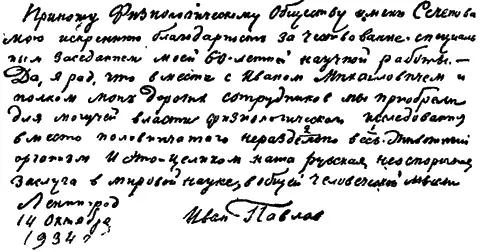 Приношу Физиологическому Обществу имени Сеченова
мою искреннюю благодарность за чествование специаль
ным заседанием моей 60-летней научной работы. —
Да, я рад, что вместе с Иваном Михайловичем и
полком моих дорогих сотрудников мы приобрели
для могучей власти физиологического исследования
вместо половинчатого нераздельно весь животный
организм. И это — целиком наша русская неоспоримая
заслуга в мировой науке, в общей человеческой мысли
Ленинград
14 Октября
1934 г.
Иван Павлов